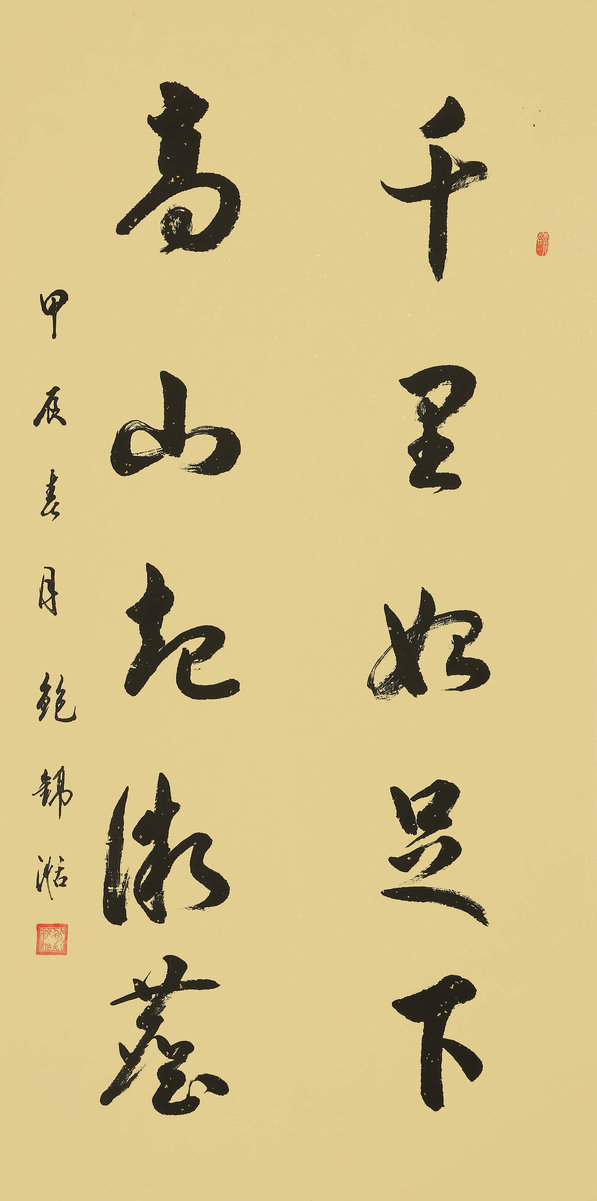 千里始足下
高山起微塵
甲辰春月鮑錦